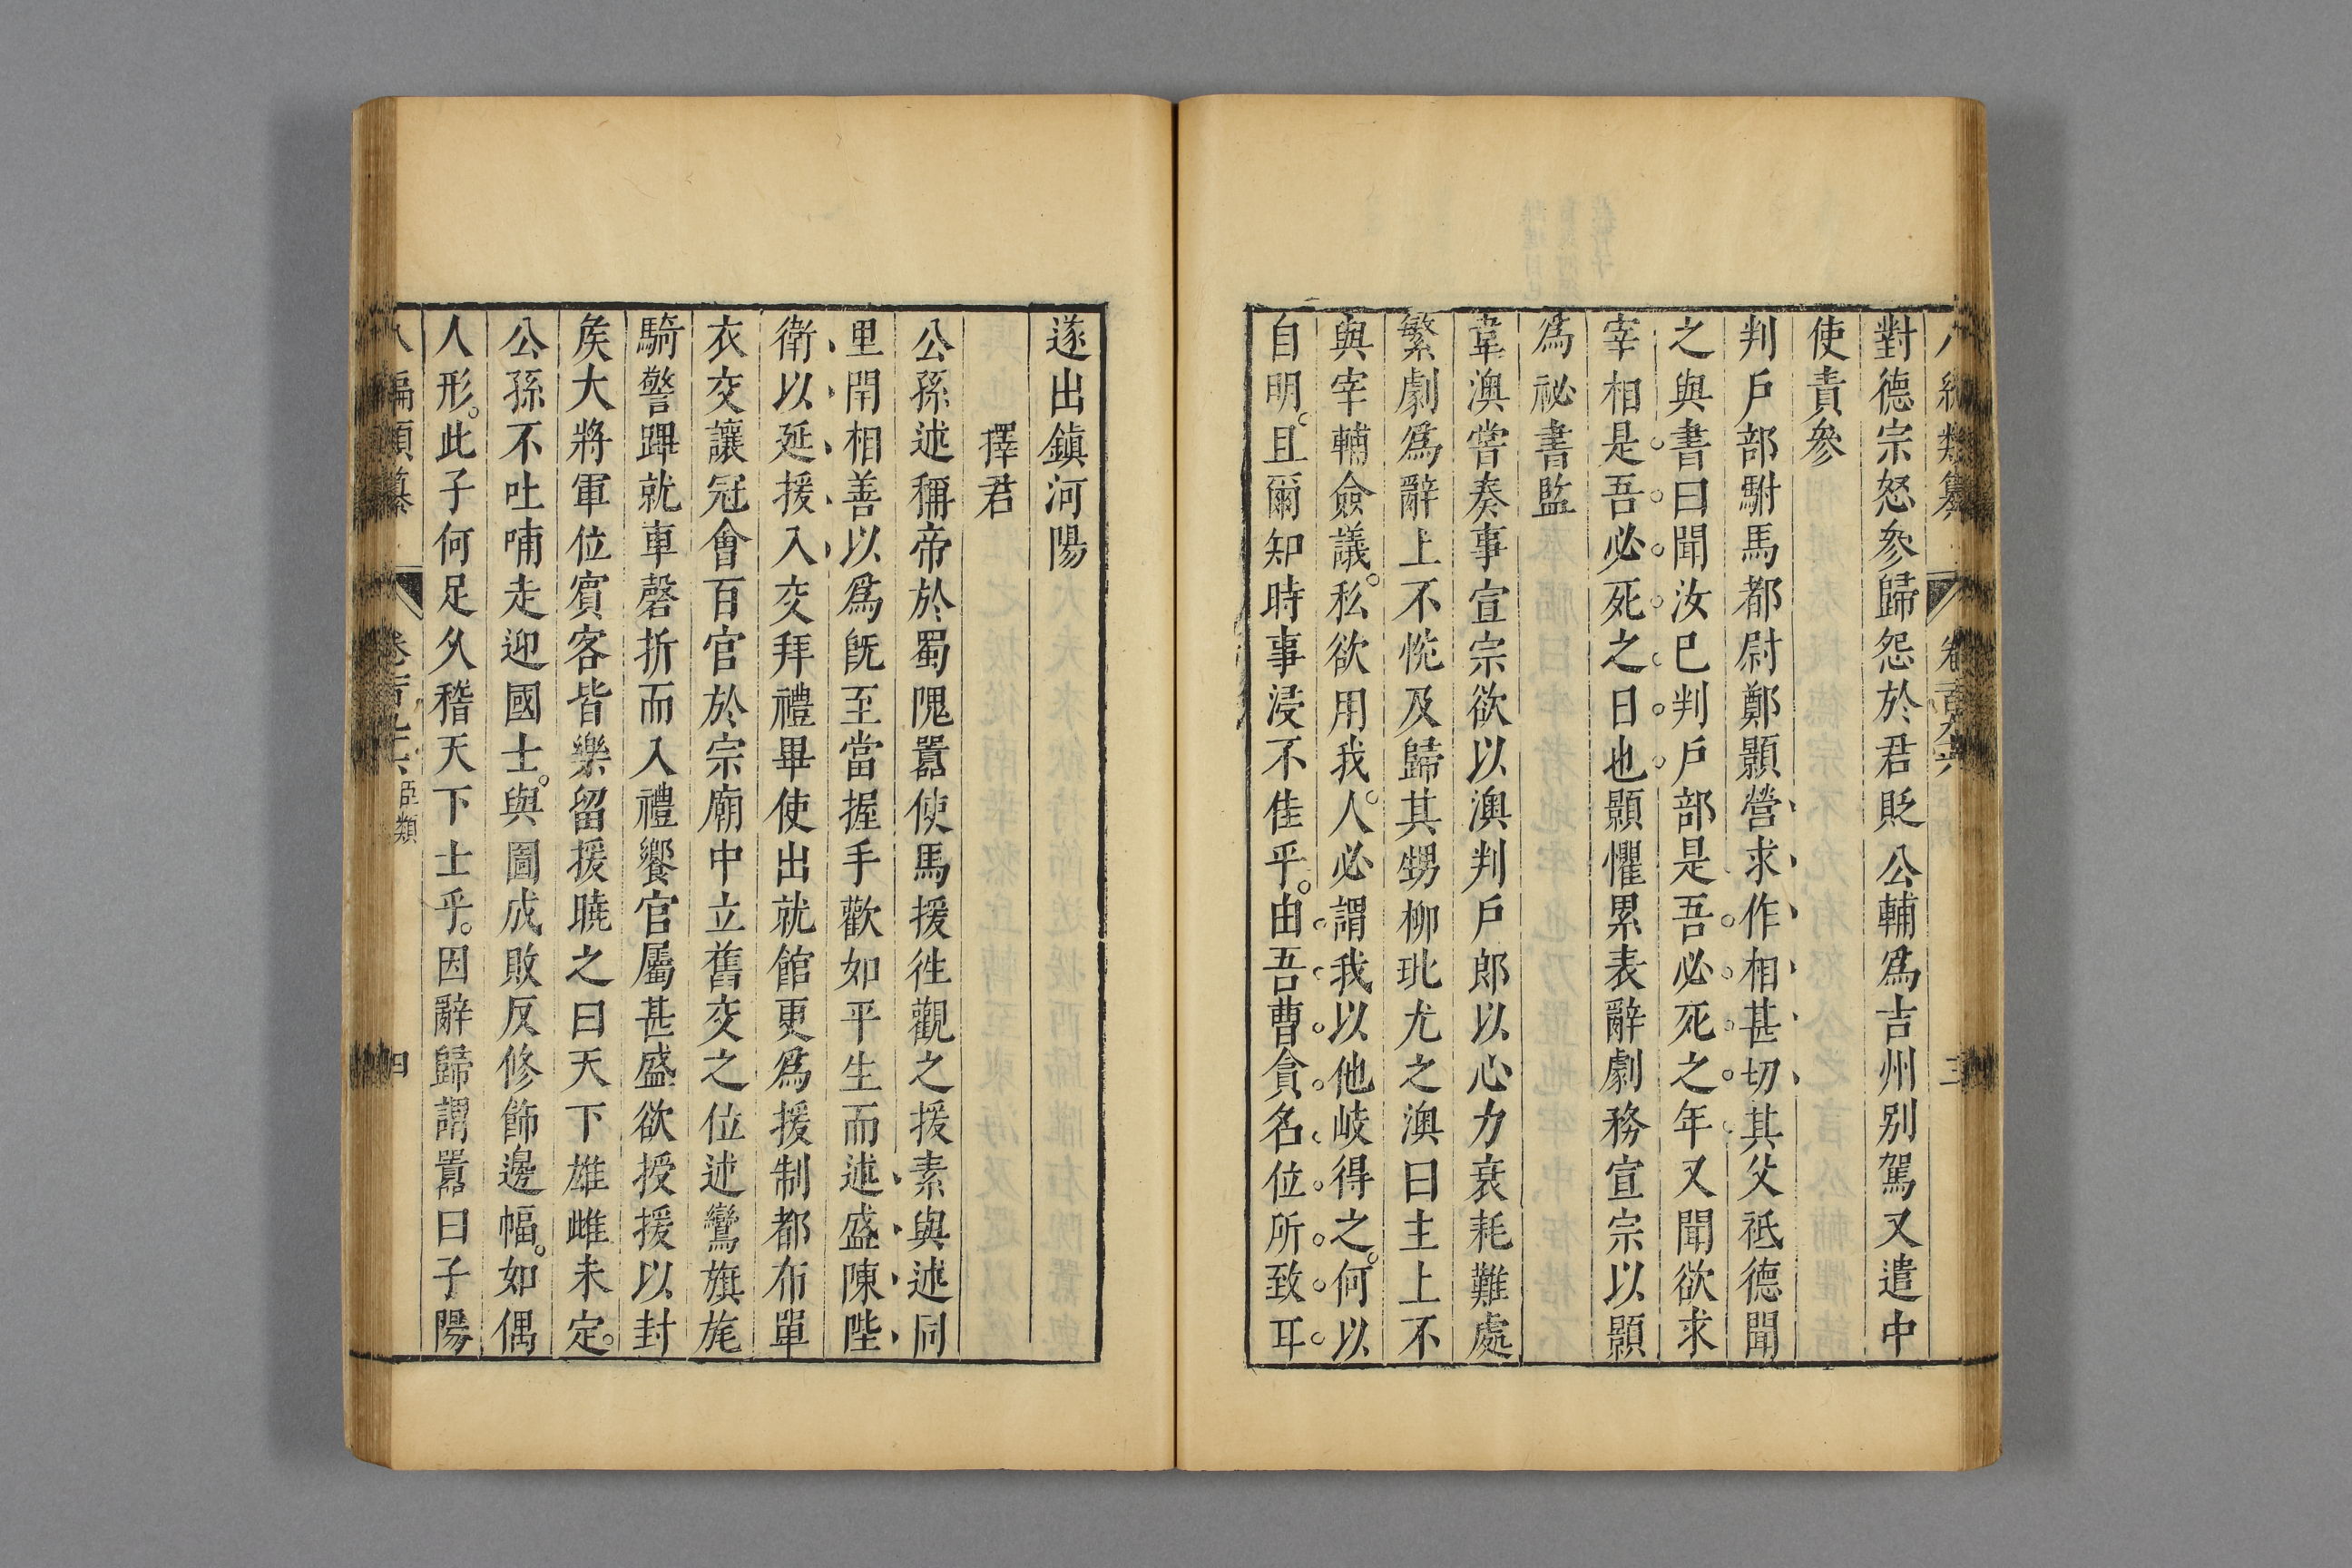 八編類纂 卷百九十六 三
對德宗怒參歸怨於君貶 公輔爲吉州别駕又遣中
使責參
判戶部駙馬都尉鄭顥營求作相甚切其父祗德聞
之與書曰聞汝巳判戶部是吾必死之年又聞欲求
宰相是吾必死之日也顥懼累表辭劇務宣宗以顥
爲祕書監
韋澳嘗奏事宣宗欲以澳判戶郎以心力衰耗難處
繁劇爲辭上不恱及歸其甥柳玭尤之澳曰主上不
與宰輔僉議。私欲用我。人必謂我以他岐得之。何以
自明。且爾知時事浸不佳乎。由吾曹貪名位所致耳
遂出鎮河陽
擇君
公孫述稱帝於蜀隗囂使馬援徃觀之援素與述同
里閈相善以爲旣至當握手歡如平生而述盛陳陛
衛以延援入交拜禮畢使出就館更爲援制都布單
衣交讓冠會百官於宗廟中立舊交之位述鸞旗旄
騎警蹕就車磬折而入禮饗官屬甚盛欲授援以封
矦大將軍位賓客皆樂留援曉之曰天下雄雌未定。
公孫不吐哺走迎國士。與圖成敗反修飾邊幅。如偶
人形。此子何足久稽天下士乎。因辭歸謂囂曰子陽
八編類纂 臣類 四